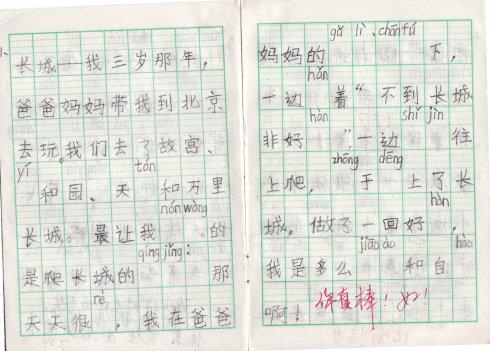 长城——我三岁那年，
爸爸妈妈带我到北京
去玩。我们去了故宫、
yí tán
和园、天 和万里
nán wàng
长城。最让我 的
qíng jǐng:
是爬长城的 那
rè
天天很 ，我在爸爸
gǔ lì、chān fú
妈妈的 下，
hǎn
一边 着“不到长城
hàn shǐ jìn
非好 ”，一边 往
zhōng dēng
上爬， 于 上了长
hàn
城。做了一回好 ，
jiāo ào háo
我是多么 和自
啊！ 你真棒！好！